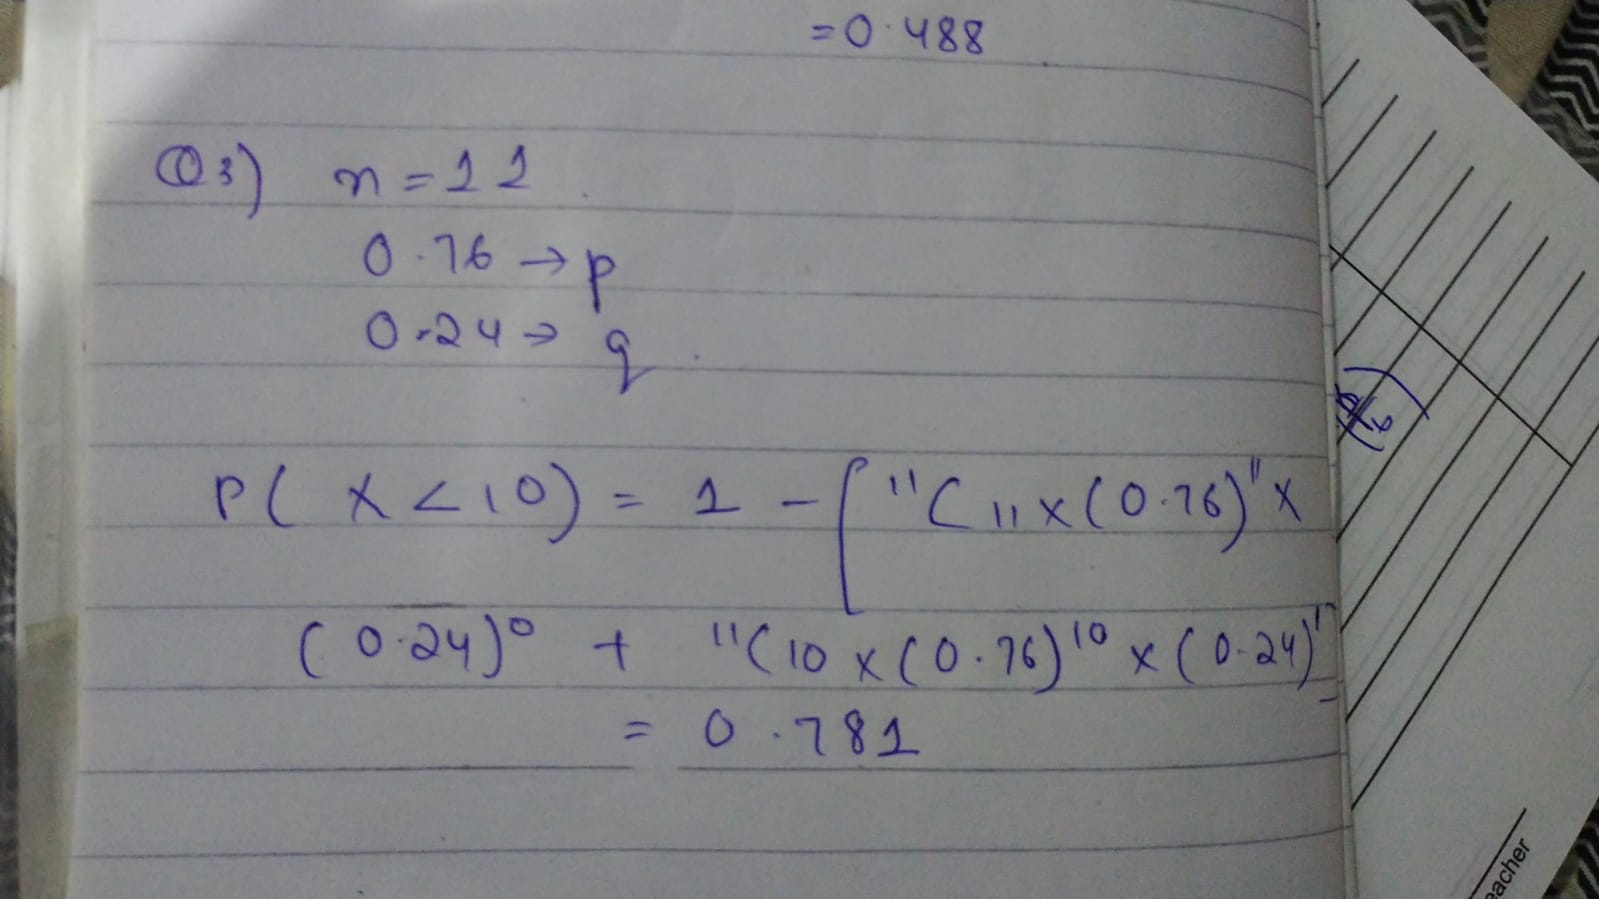 =0.488
Q3) n=11
0.76 → p
0.24 → q
P( X < 10) = 1 - [ ¹¹C₁₁ x (0.76)¹¹ x
(0.24)⁰ + ¹¹C10 x (0.76)¹⁰ x (0.24)¹
= 0.781
eacher